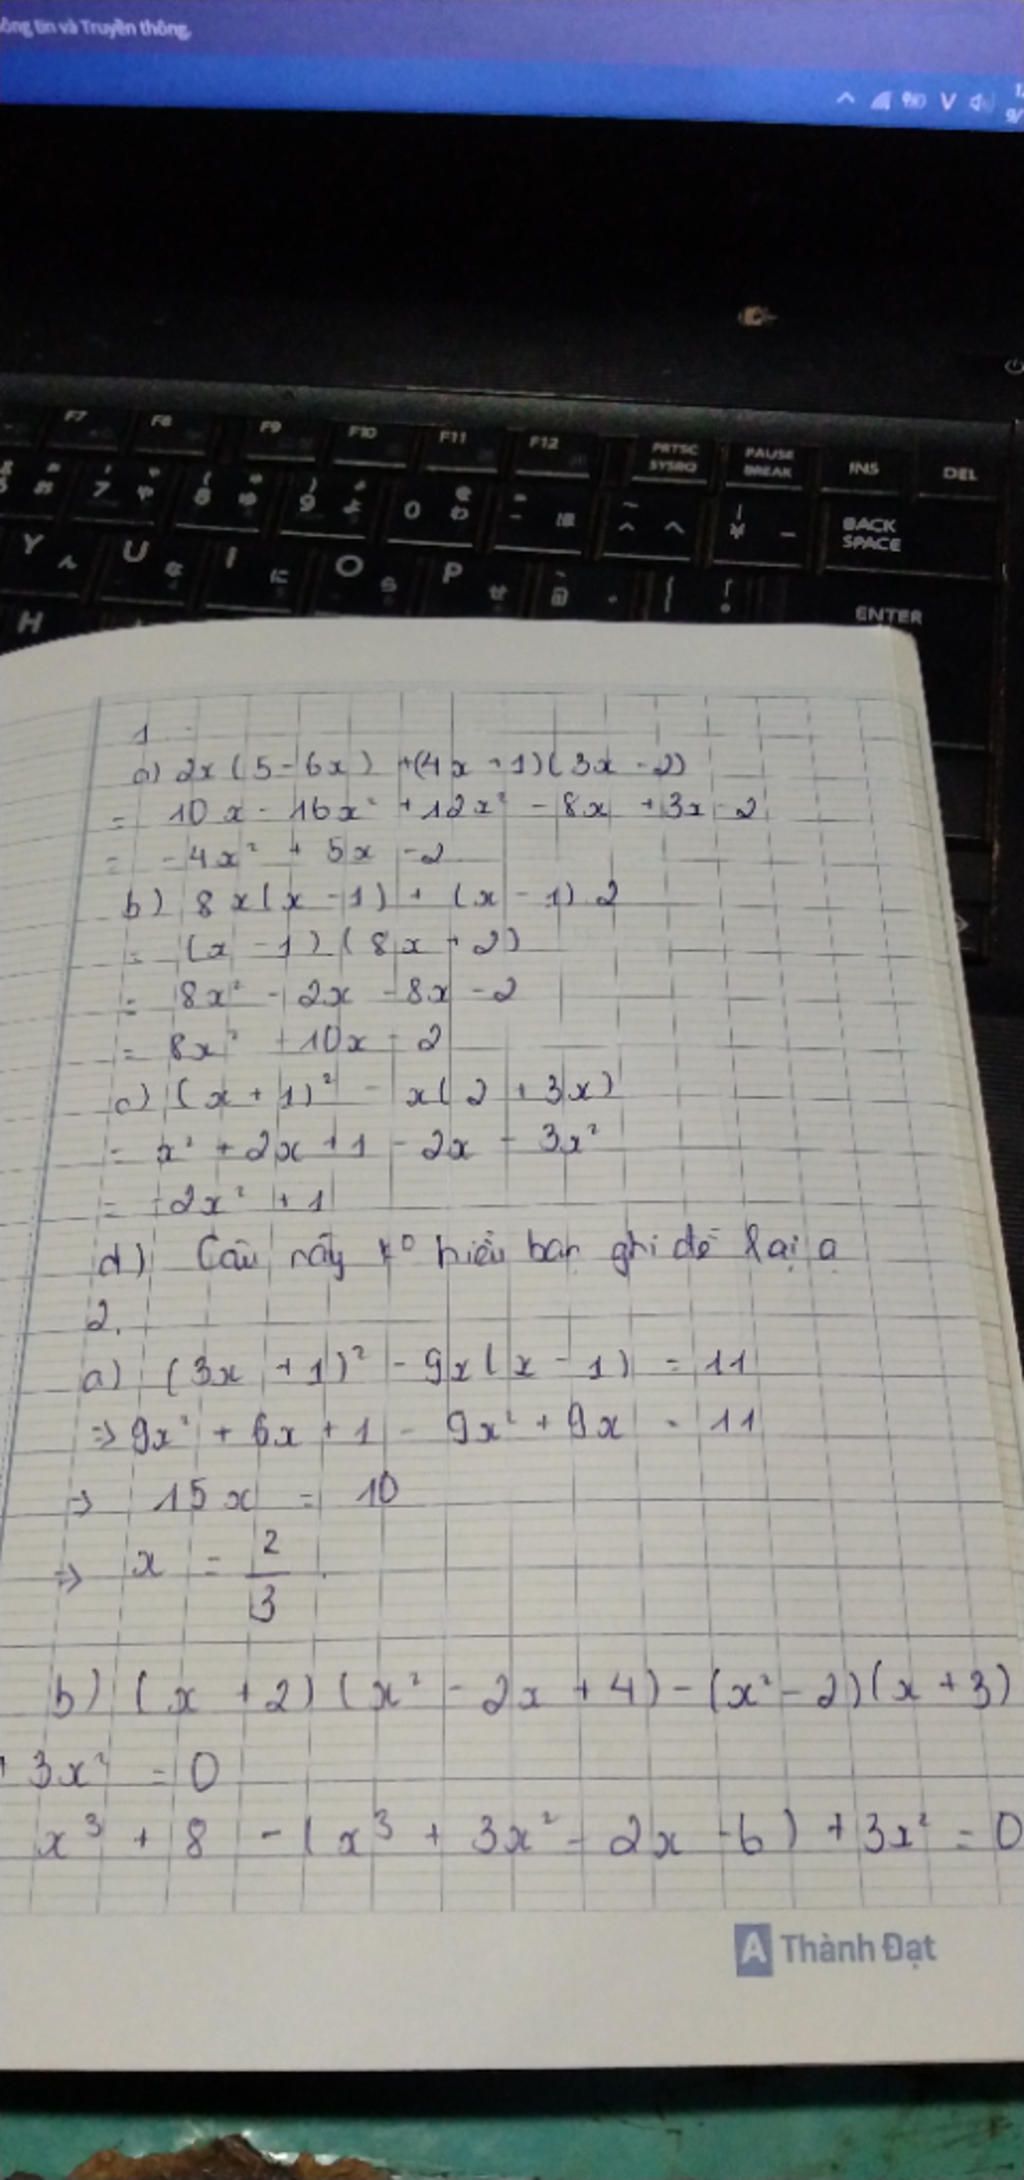 ông tin và Truyền thông.
F7 F8 F9 F10 F11 F12 PRTSC SYSRQ PAUSE BREAK INS DEL
7 8 9 0 BACK SPACE
Y U I O P
H ENTER
1
a) 2x(5-6x) +(4x+1)(3x-2)
= 10x - 16x² + 12x² - 8x + 3x - 2
= -4x² + 5x - 2
b) 8x(x-1) + (x-1).2
= (x-1)(8x+2)
= 8x² - 2x - 8x - 2
= 8x² + 10x - 2
c) (x+1)² - x(2+3x)
= x² + 2x + 1 - 2x - 3x²
= -2x² + 1
d) Câu này k° hiểu bạn ghi đề lại ạ
2.
a) (3x+1)² - 9x(x-1) = 11
=> 9x² + 6x + 1 - 9x² + 9x = 11
=> 15x = 10
=> x = 2/3
b) (x+2)(x²-2x+4)-(x²-2)(x+3)
+ 3x² = 0
x³ + 8 -(x³ + 3x² - 2x - 6) + 3x² = 0
A Thành Đạt